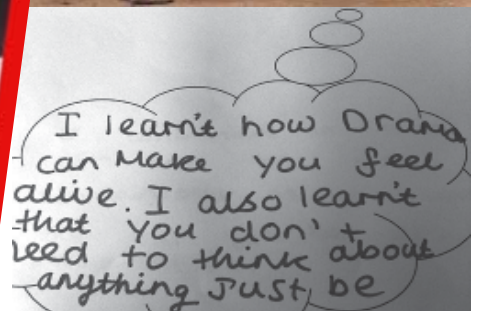 I learn't how Drama
can make you feel
alive. I also learn't
that you don't
need to think about
anything Just be